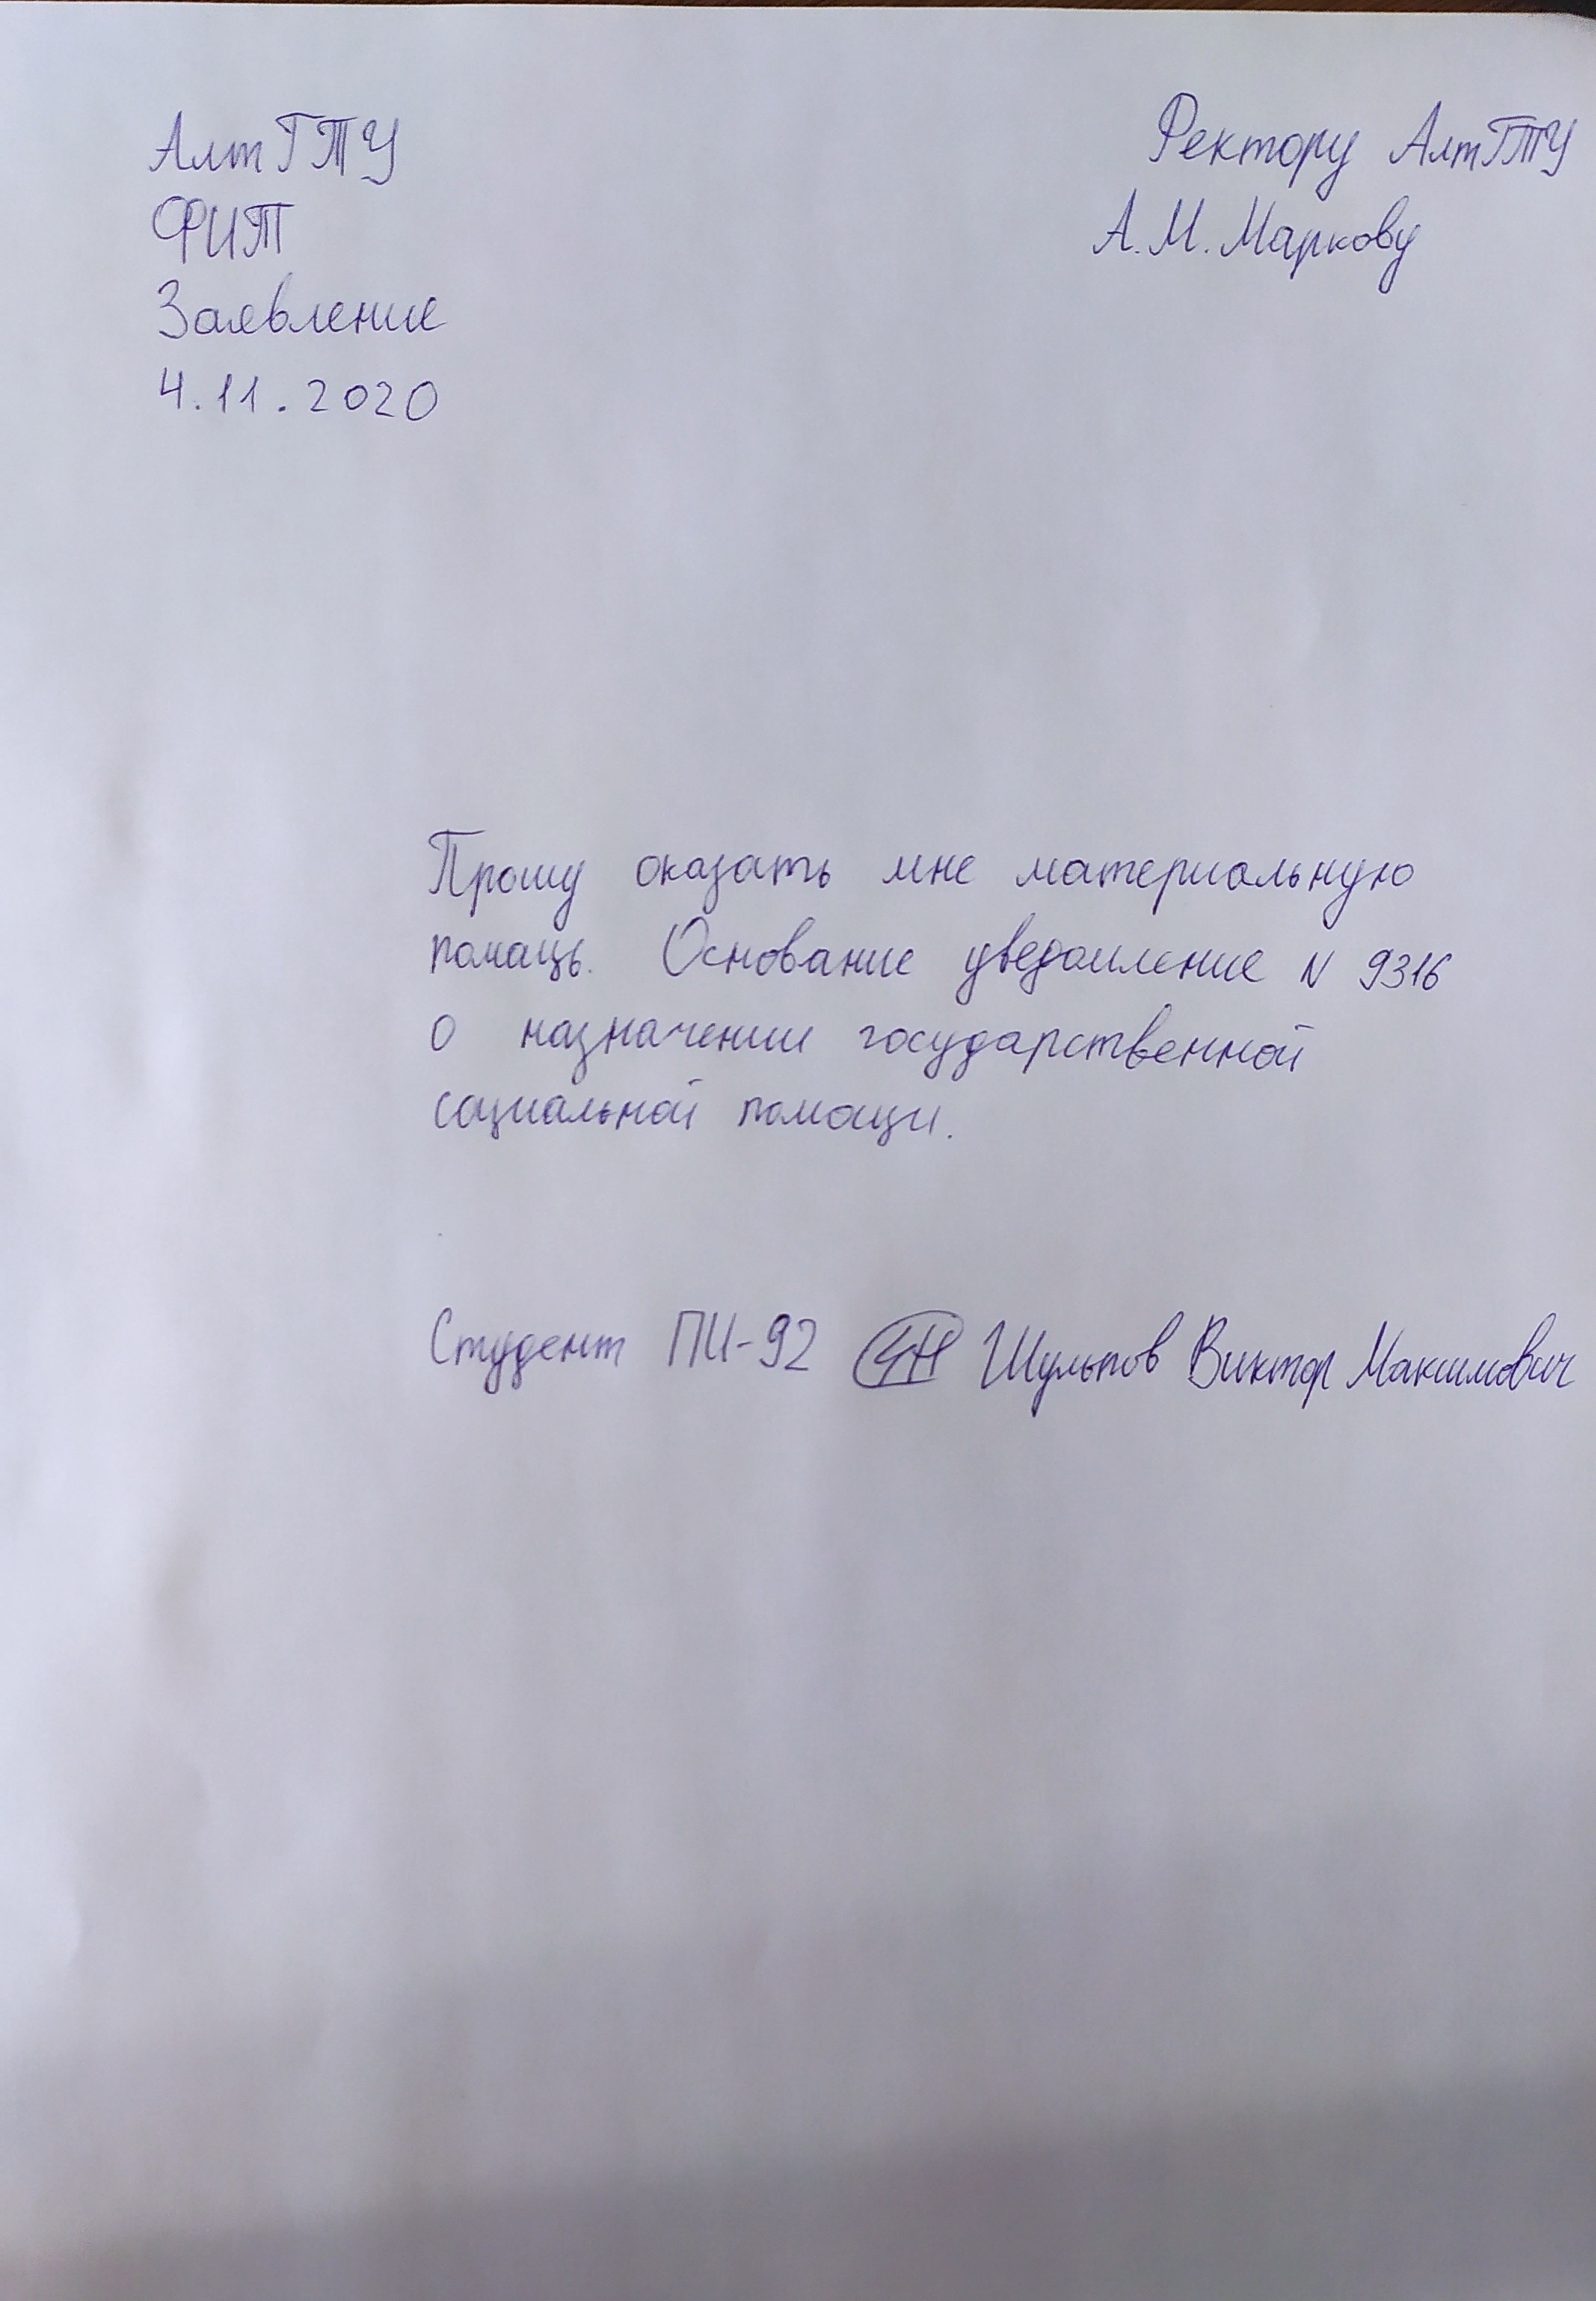 АлтГТУ
ФИТ
Заявление
4.11.2020
Ректору АлтГТУ
А.М. Маркову
Прошу оказать мне материальную
помощь. Основание уведомление N 9316
о назначении государственной
социальной помощи.
Студент ПИ-92 Шульпов Виктор Максимович